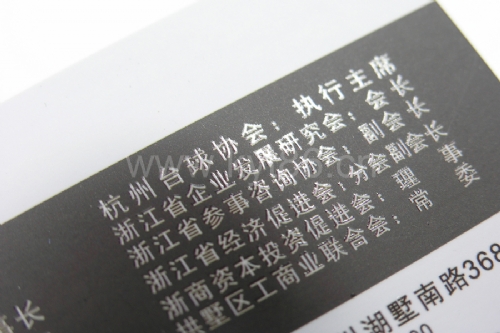 杭州台球协会：执行主席
浙江省企业发展研究会：会长
浙江省参事咨询协会：副会长
浙江省经济促进会：分会副会长
浙商资本投资促进会：理事
拱墅区工商业联合会：常委
长
湖墅南路368